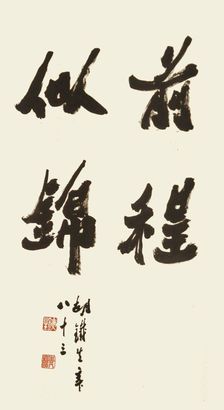 前程
似錦
胡鐵生年
八十三